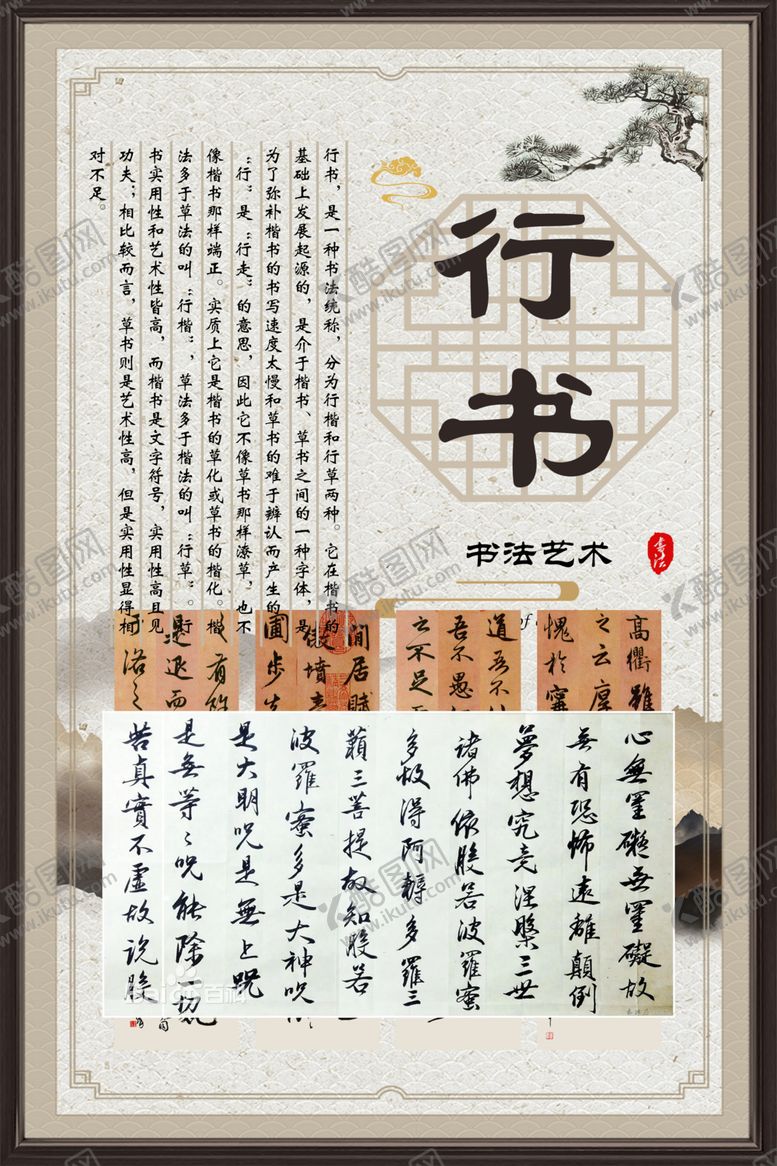 行书
书法艺术
行书，是一种书法统称，分为行楷和行草两种。它在楷书的
基础上发展起源的，是介于楷书、草书之间的一种字体，是
为了弥补楷书的书写速度太慢和草书的难于辨认而产生的。
“行”是“行走”的意思，因此它不像草书那样潦草，也不
像楷书那样端正。实质上它是楷书的草化或草书的楷化。楷
法多于草法的叫“行楷”，草法多于楷法的叫“行草”。行
书实用性和艺术性皆高，而楷书是文字符号，实用性高且见
功夫；相比较而言，草书则是艺术性高，但是实用性显得相
对不足。
高衢雖
之云厚
愧於寗
道吾不
吾不愚
云不足
閒居賦
墳素
圃步
有
是退而
洛之
心無罣礙無罣礙故
無有恐怖遠離顛倒
夢想究竟涅槃三世
諸佛依般若波羅蜜
多故得阿耨多羅三
藐三菩提故知般若
波羅蜜多是大神咒
是大明咒是無上咒
是無等〻咒能除一切
苦真實不虛故說般
Bai百科
酷图网
www.ikutu.com